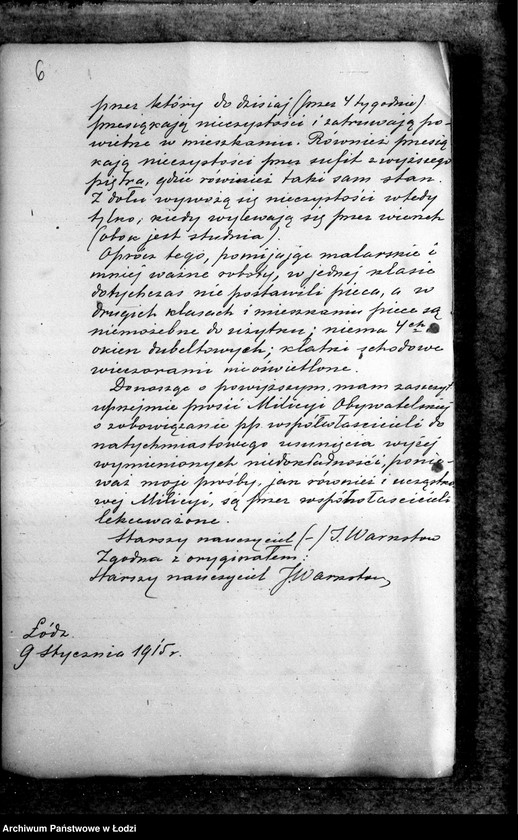 6
przez który do dzisiaj (przez 4 tygodnie)
przesiąkają nieczystości i zatruwają po-
wietrze w mieszkaniu. Również przesią
kają nieczystości przez sufit z wyższego
piętra, gdzie również taki sam stan.
Z dołu wywożą się nieczystości wtedy
tylko, kiedy wylewają się przez wierzch
(obok jest studnia).
Oprócz tego, pomijając malarskie i
mniej ważne roboty, w jednej klasie
dotychczas nie postawili pieca, a w
drugich klasach i mieszkaniu piece są
niemożebne do użytku; niema 4ch
okien dubeltowych; klatki schodowe
wieczorami nieoświetlone.
Donosząc o powyższym, mam zaszczyt
uprzejmie prosić Milicyi Obywatelskiej
o zobowiązanie pp. współwłaścicieli do
natychmiastowego usunięcia wyżej
wymienionych niedokładności, ponie-
waż moje prośby, jak również i uczęstko
wej Milicyi, są przez współwłaścicieli
lekceważone.
Starszy nauczyciel (-) J. Warnstow
Zgodna z oryginałem:
Starszy nauczyciel J. Warnstow
Łódz.
9 Stycznia 1915 r.
Archiwum Państwowe w Łodzi